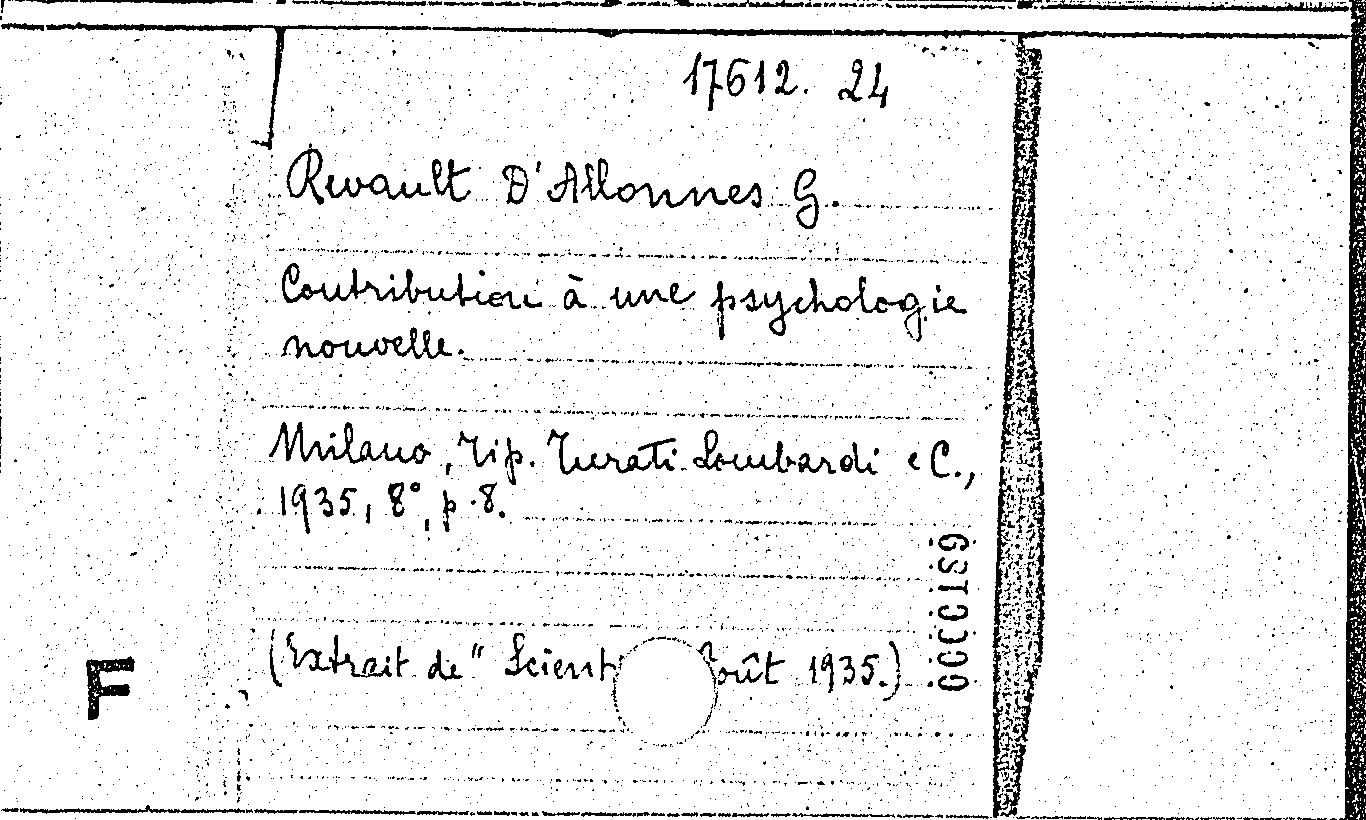 17612. 24
Revault D'Allonnes G.
Contribution à une psychologie
nouvelle.
Milano, Tip. Turati Lombardi e C.,
1935, 8°, p. 8.
(Extrait de " Scient oût 1935.)
F